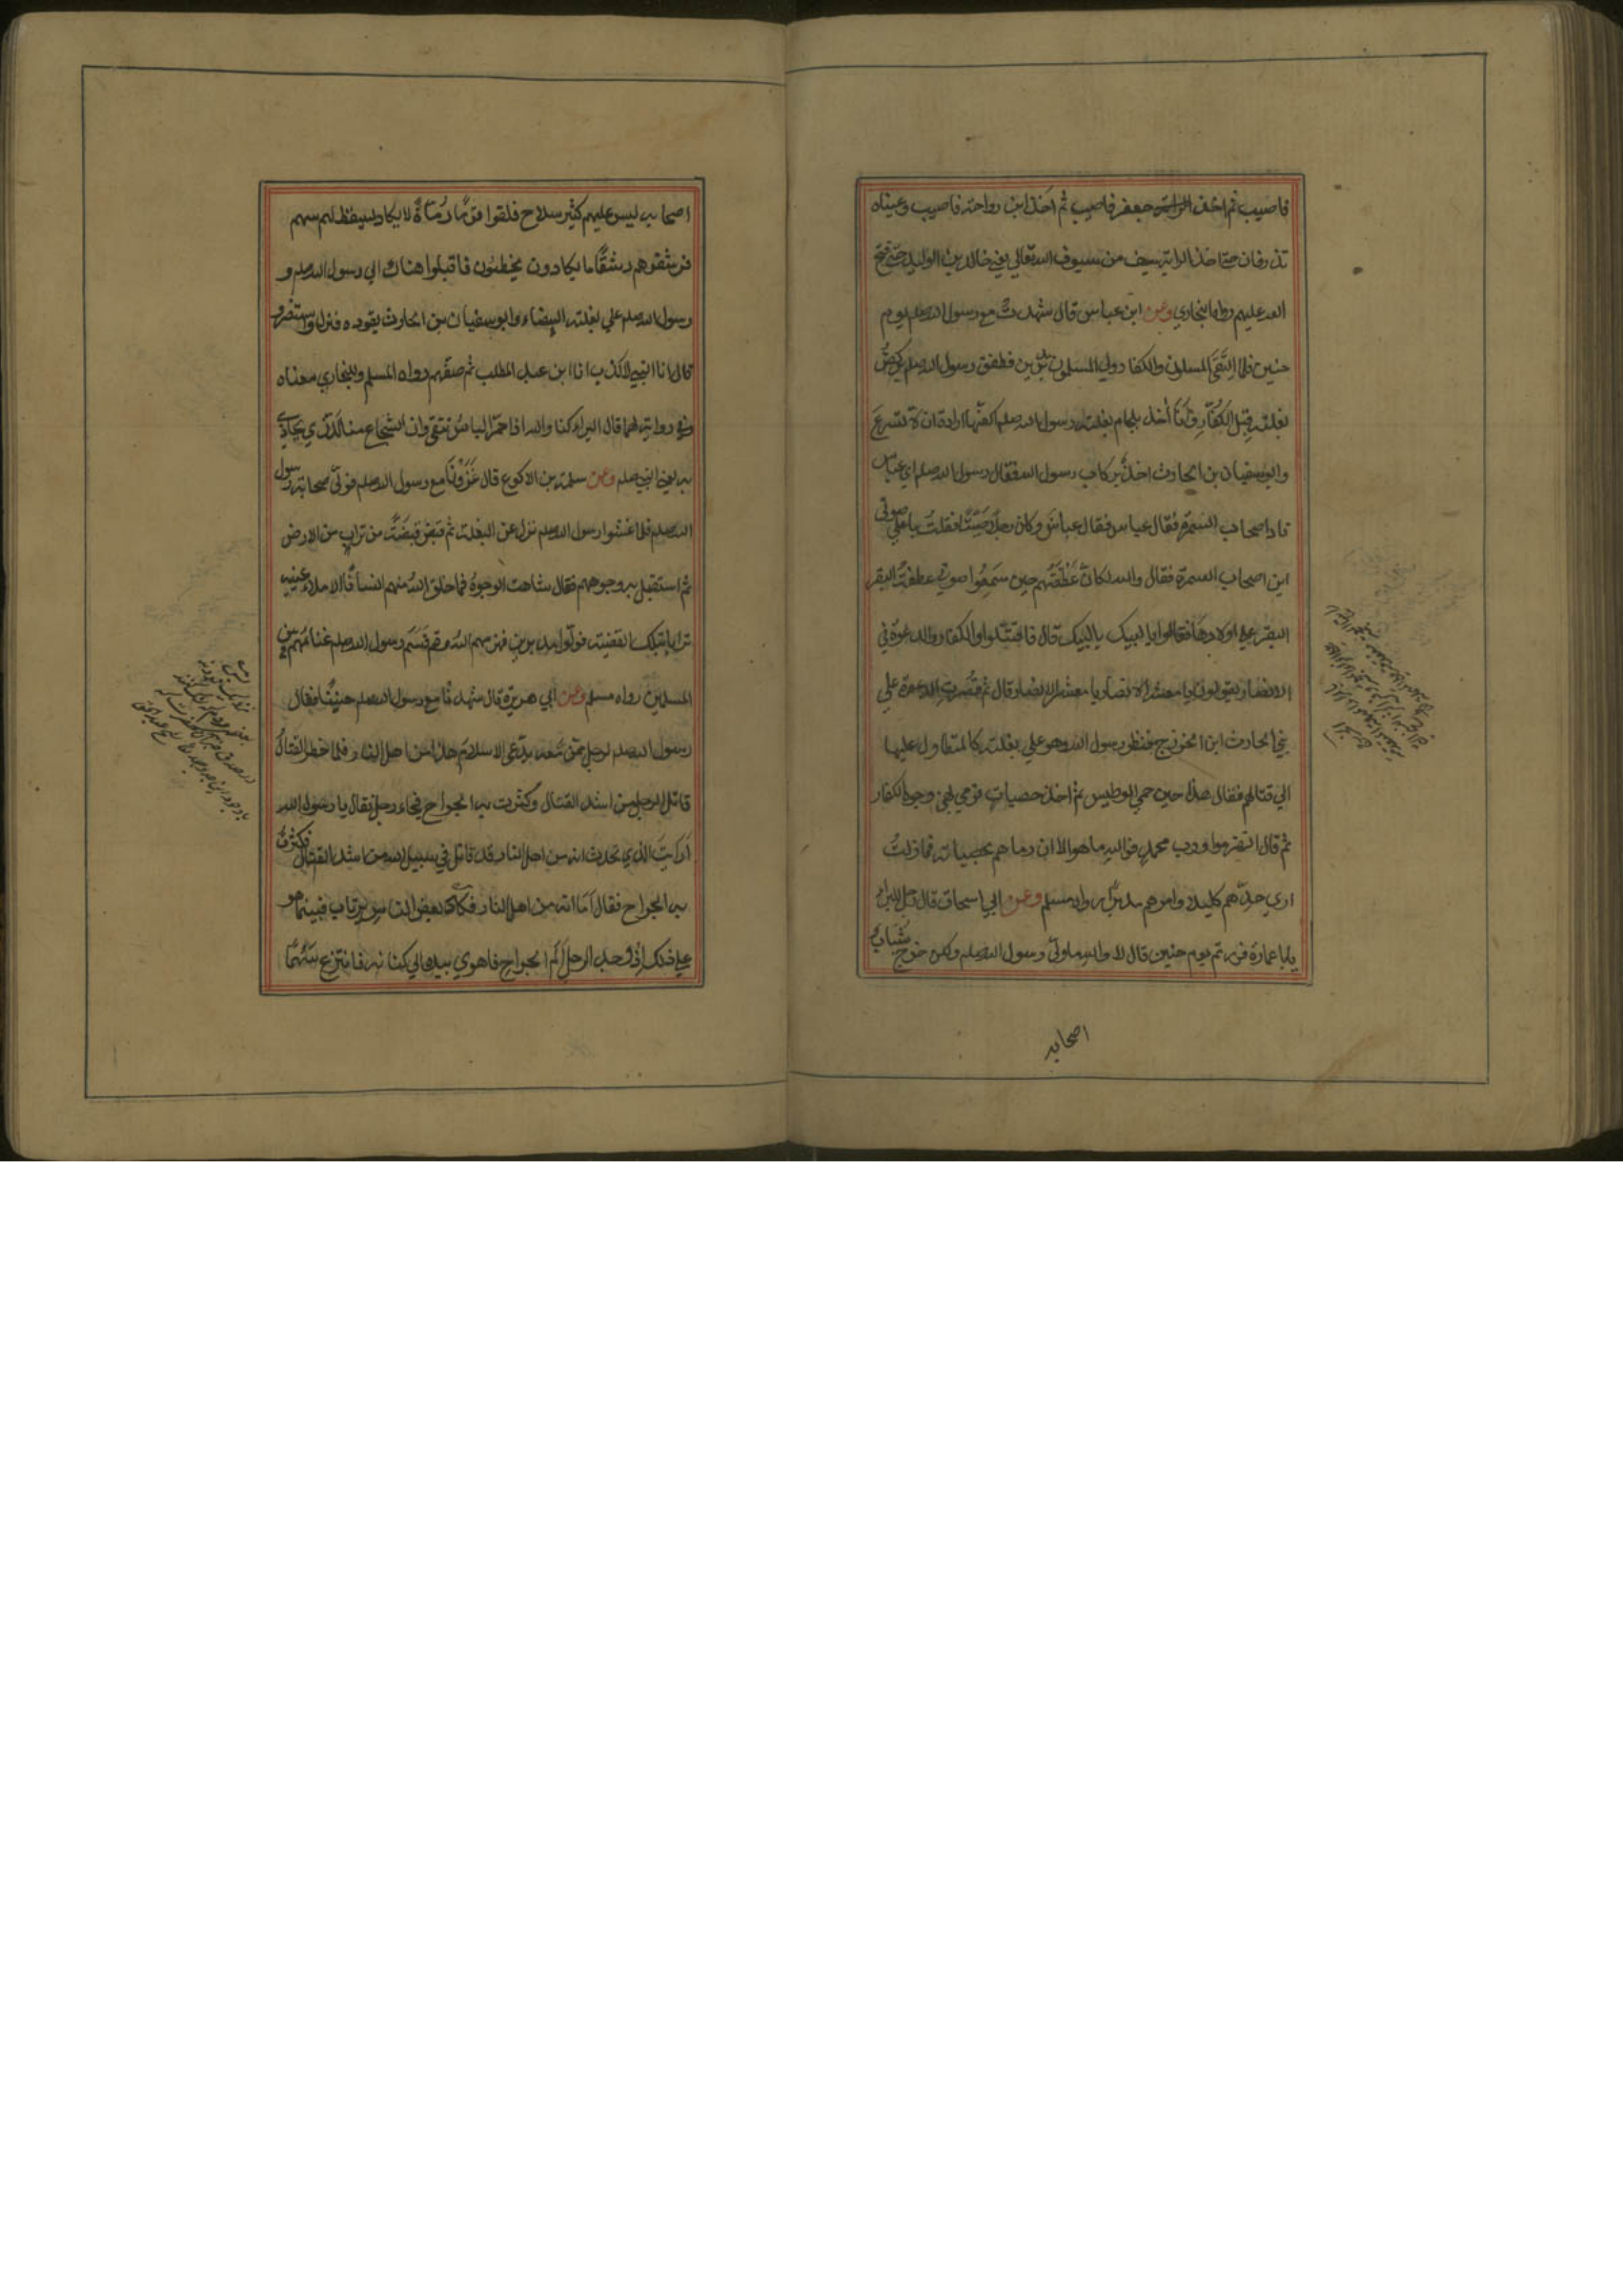 فاصيب ثم اخذ الراية جعفر فاصيب ثم اخذ ابن رواحة فاصيب وعيناه
تذرفان حتى اخذ الراية سيف من سيوف الله تعالى يعني خالد بن الوليد حتى فتح
الله عليهم رواه البخاري وعن ابن عباس قال شهدت مع رسول الله صلعم يوم
حنين فلما التقى المسلمون والكفار ولي المسلمون مدبرين فطفق رسول الله صلعم يركض
بغلته قبل الكفار وانا آخذ بلجام بغلة رسول الله صلعم اكفها ارادة ان لا تسرع
وابو سفيان بن الحارث اخذ بركاب رسول الله فقال رسول الله صلعم اي عباس
ناد اصحاب السمرة فقال عباس فقال عباس وكان رجلا صيتا فقلت باعلي صوتي
اين اصحاب السمرة فقال والله لكان عطفتهم حين سمعوا صوتي عطفة البقر
البقر علي اولادها فقالوا يا لبيك يا لبيك قال فاقتتلوا والكفار والدعوة في
الانصار يقولون يا معشر الانصار يا معشر الانصار قال ثم قصرت الدعوة علي
بني الحارث ابن الخزرج فنظر رسول الله وهو علي بغلته كالمتطاول عليها
الي قتالهم فقال هذا حين حمي الوطيس ثم اخذ حصيات فرمي بهن وجوه الكفار
ثم قال انهزموا ورب محمد فوالله ما هو الا ان رماهم بحصياته فما زلت
اري حدهم كليلا وامرهم مدبرا رواه مسلم وعن ابي اسحاق قال قال رجل للبراء
يابا عمارة فررتم يوم حنين قال لا والله ما ولي رسول الله صلعم ولكن خرج شبان
اصحابه
اصحابه ليس عليهم كثير سلاح فلقوا قوما رماة لا يكاد يسقط لهم سهم
فرشقوهم رشقا ما يكادون يخطئون فاقبلوا هناك الي رسول الله صلعم و
رسول الله صلعم علي بغلته البيضاء وابو سفيان بن الحارث يقوده فنزل واستنصر و
قال انا النبي لا كذب انا ابن عبد المطلب ثم صفهم رواه المسلم وللبخاري معناه
وفي رواية لهما قال البراء كنا والله اذا احمر الباس نتقي وان الشجاع منا للذي يحاذي
به يعني النبي صلعم وعن سلمة بن الاكوع قال غزونا مع رسول الله صلعم فولي صحابة رسول
الله صلعم فلما غشوا رسول الله صلعم نزل عن البغلة ثم قبض قبضة من تراب من الارض
ثم استقبل به وجوههم فقال شاهت الوجوه فما خلق الله منهم انسانا الا ملاء عينيه
ترابا بتلك القبضة فولوا مدبرين فهزمهم الله وقسم رسول الله صلعم غنائمهم بين
المسلمين رواه مسلم وعن ابي هريرة قال شهدنا مع رسول الله صلعم حنينا فقال
رسول الله صلعم لرجل ممن معه يدعي الاسلام هذا من اهل النار فلما حضر القتال
قاتل الرجل من اشد القتال وكثرت به الجراح فجاء رجل فقال يا رسول الله
ارايت الذي تحدث انه من اهل النار قد قاتل في سبيل الله من اشد القتال فكثرت
به الجراح فقال اما انه من اهل النار فكاد بعض الناس يرتاب فبينما هو
علي ذلك اذ وجد الرجل الم الجراح فاهوي بيده الي كنانته فانتزع سهما